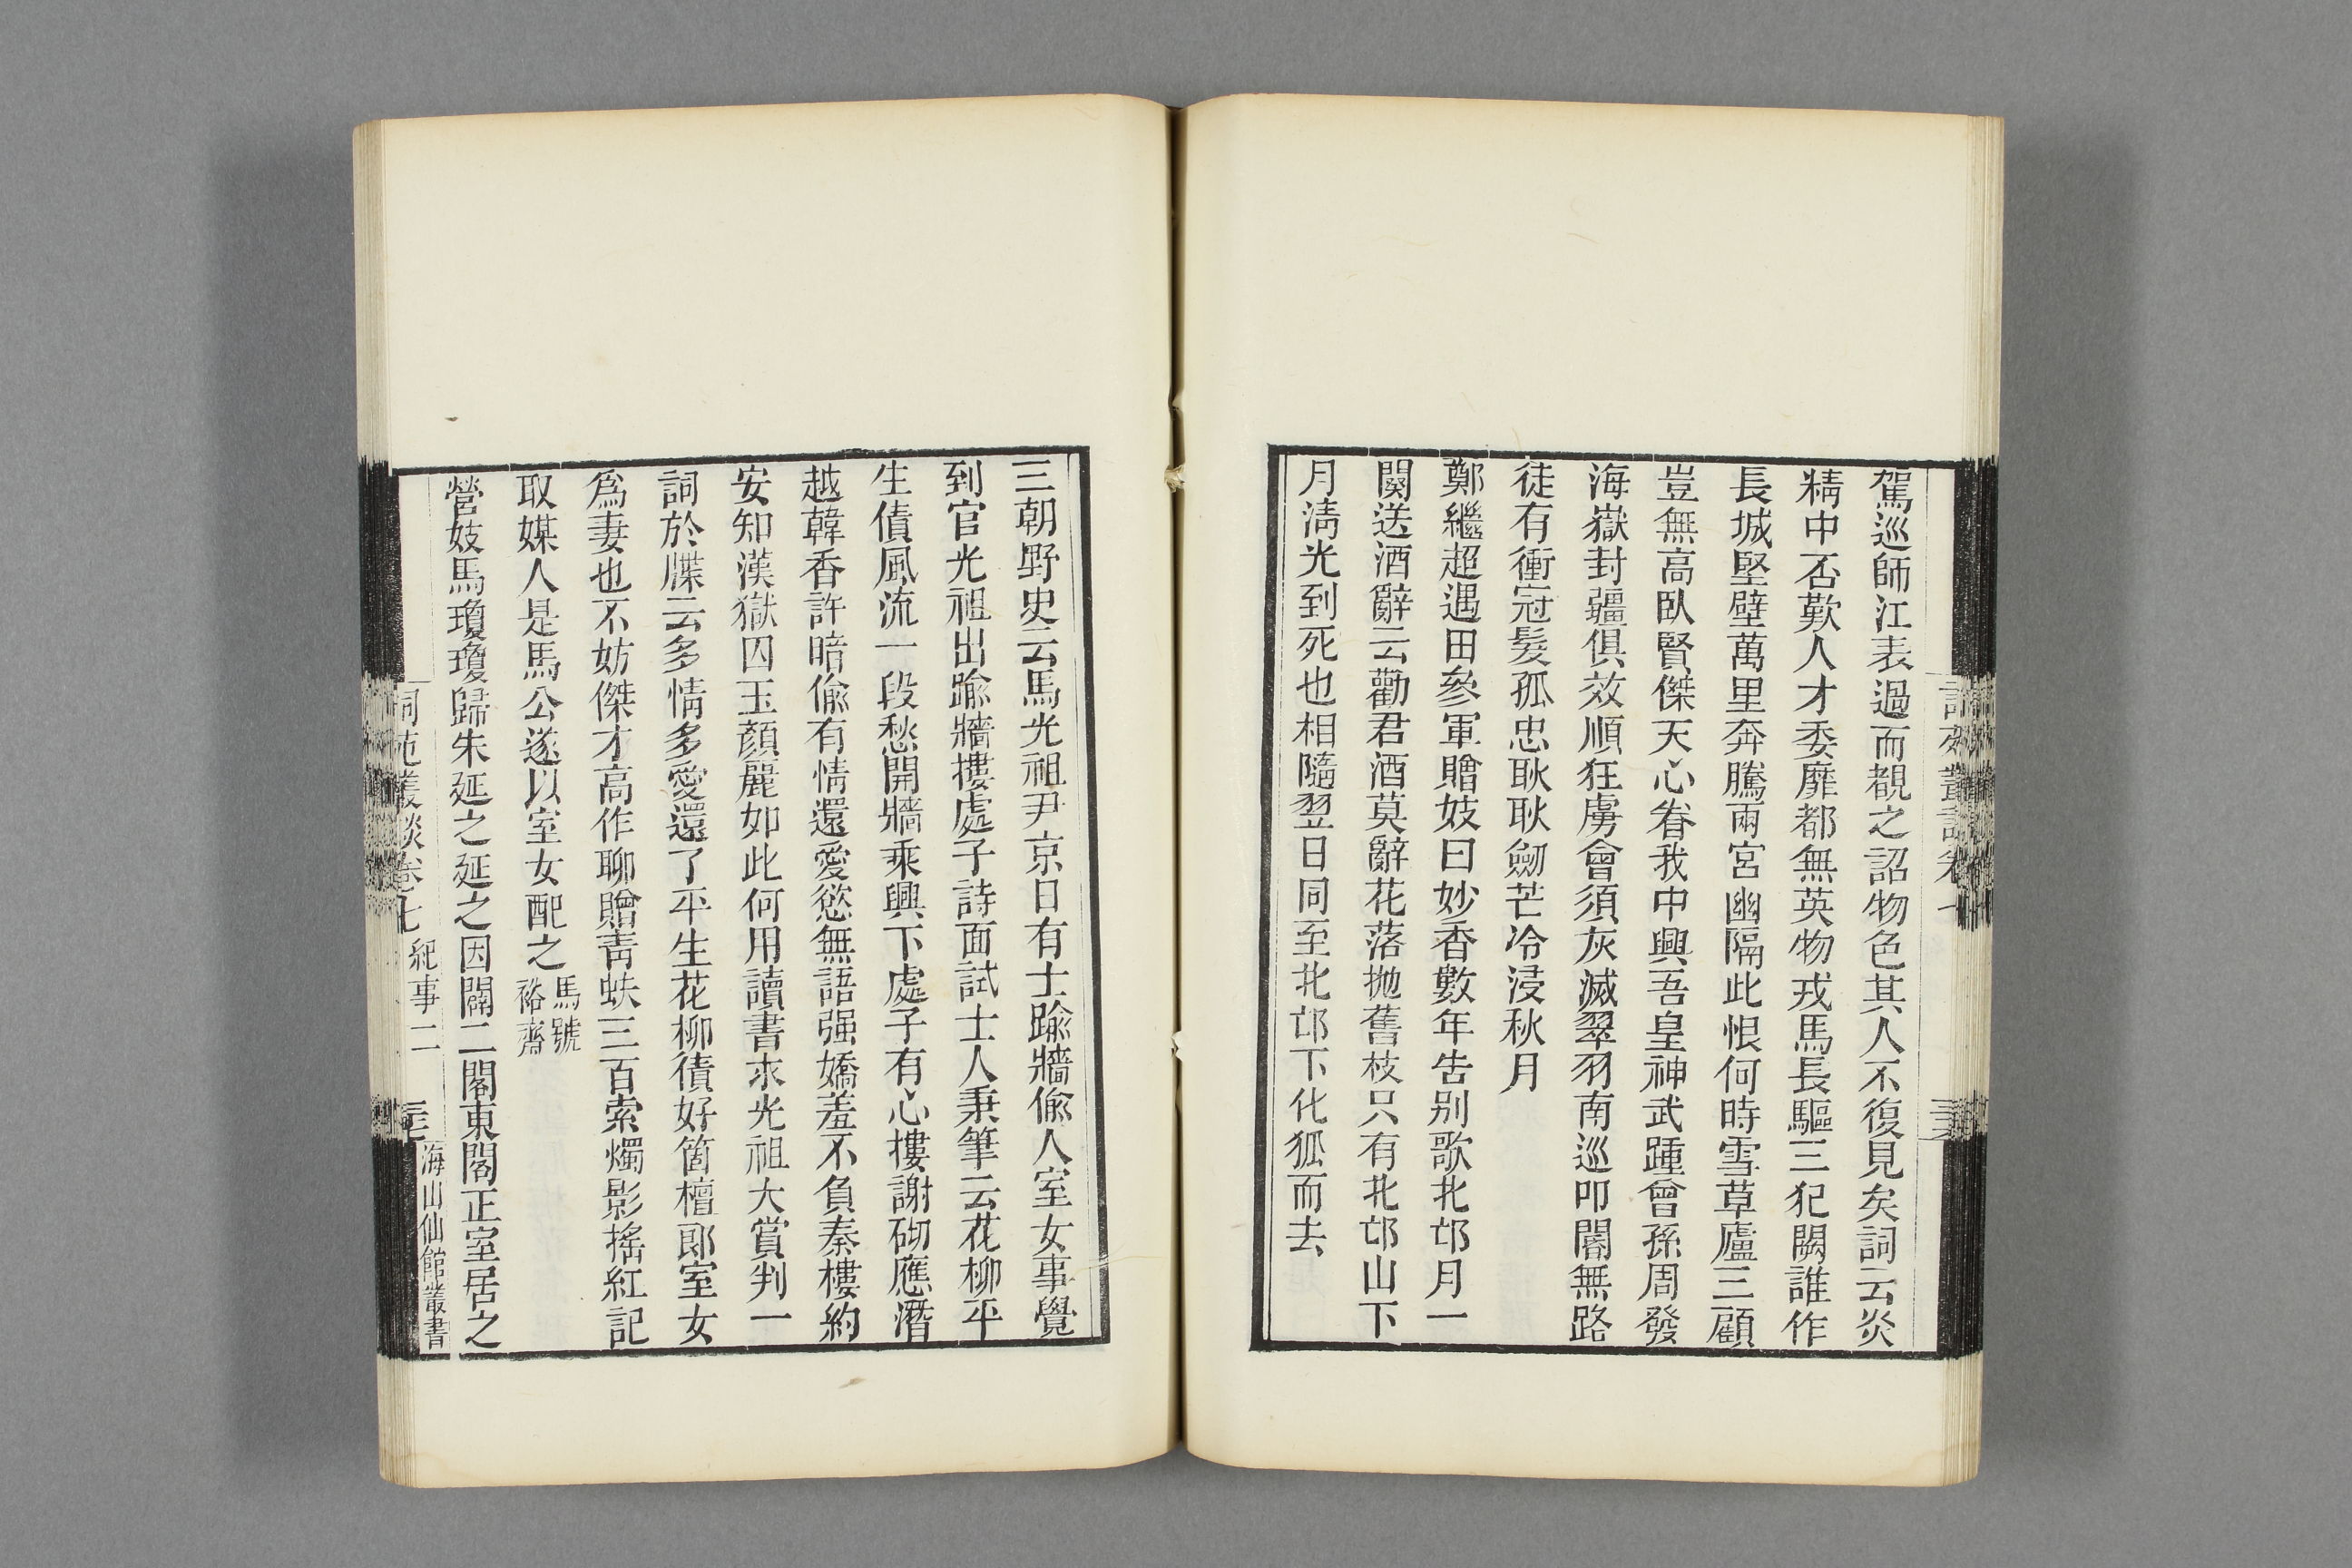 駕巡師江表過而覩之詔物色其人不復見矣詞云炎
精中否歎人才委靡都無英物戎馬長驅三犯闕誰作
長城堅壁萬里奔騰兩宮幽隔此恨何時雪草廬三顧
豈無高臥賢傑天心眷我中興吾皇神武踵曾孫周發
海嶽封疆俱效順狂虜會須灰滅翠羽南巡叩閽無路
徒有衝冠髮孤忠耿耿劒芒冷浸秋月
鄭繼超遇田參軍贈妓曰妙香數年告别歌北邙月一
闋送酒辭云勸君酒莫辭花落拋舊枝只有北邙山下
月淸光到死也相隨翌日同至北邙下化狐而去
三朝野史云馬光祖尹京日有士踰牆偸人室女事覺
到官光祖出踰牆摟處子詩面試士人秉筆云花柳平
生債風流一段愁開牆乘興下處子有心摟謝砌應潛
越韓香許暗偸有情還愛慾無語强嬌羞不負秦樓約
安知漢獄囚玉顏麗如此何用讀書求光祖大賞判一
詞於牒云多情多愛還了平生花柳債好箇檀郎室女
爲妻也不妨傑才高作聊贈靑蚨三百索燭影搖紅記
取媒人是馬公遂以室女配之馬號裕齋
營妓馬瓊瓊歸朱延之延之因闢二閣東閣正室居之
詞苑叢談卷七 紀事二 海山仙館叢書